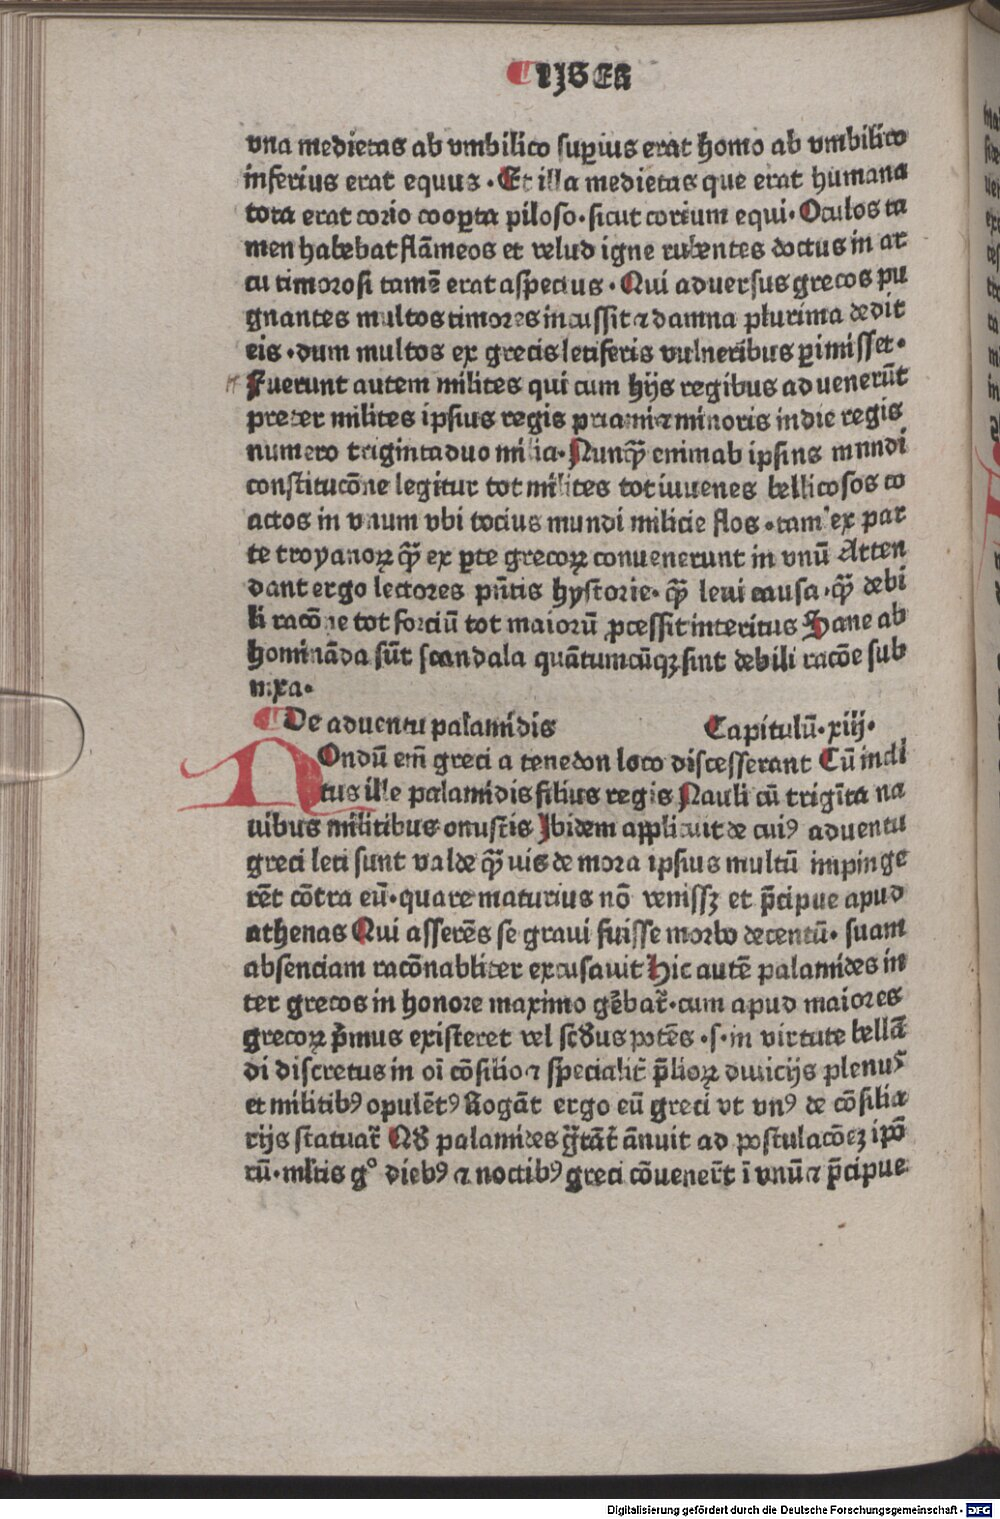 LIBER
vna medietas ab vmbilico suꝑius erat homo ab vmbilico
inferius erat equus · Et illa medietas que erat humana
tota erat corio cooꝑta piloso · sicut corium equi · Oculos ta
men habebat flāmeos et velud igne rubentes doctus in ar
cu timorosi tamē erat aspectus · Qui aduersus grecos pu
gnantes multos timores incussit ⁊ damna plurima dedit
eis · dum multos ex grecis letiferis vulneribus ꝑimisset ·
Fuerunt autem milites qui cum hijs regibus aduenerūt
preter milites ipsius regis priami ⁊ minoris indie regis
numero trigintaduo milia · Nunꝙ̄ enim ab ipsius mundi
constitucōne legitur tot milites tot iuuenes bellicosos co
actos in vnum vbi tocius mundi milicie flos · tam ex par
te troyanoꝝ ꝙ̄ ex ꝑte grecoꝝ conuenerunt in vnū Atten
dant ergo lectores pn̄tis hystorie · ꝙ̄ leui causa · ꝙ̄ debi
li racōne tot forciū tot maiorū ꝓcessit interitus Sane ab
homināda sūt scandala quātumcūqꝫ sint debili racōe sub
nixa ·
De aduentu palamidis Capitulū · xiij ·
NOndū em̄ greci a tenedon loco discesserant Cū incli
tus ille palamidis filius regis Nauli cū trigīta na
uibus militibus onustis Ibidem applicuit de cuiꝰ aduentu
greci leti sunt valde ꝙ̄uis de mora ipsius multū impinge
rēt cōtra eū · quare maturius nō venissꝫ et p̄cipue apud
athenas Qui asserēs se graui fuisse morbo detentū · suam
absenciam racōnabliter excusauit Hic autē palamides in
ter grecos in honore maximo gēbat᷑ · cum apud maiores
grecoꝝ p̄mus existeret vel scd̄us potēs · s · in virtute bellā
di discretus in oī cōsilio ⁊ specialit᷑ p̄lioꝝ diuicijs plenus
et militibꝰ opulētꝰ Rogāt ergo eū greci vt vnꝰ de cōsilia
rijs statuat᷑ Qd̄ palamides g̃tāt᷑ ānuit ad postulacōeꝫ ipō
rū · ml̄tis gͦ diebꝰ ⁊ noctibꝰ greci cōuenert̄ ī vnū ⁊ p̄cipue
Digitalisierung gefördert durch die Deutsche Forschungsgemeinschaft - DFG